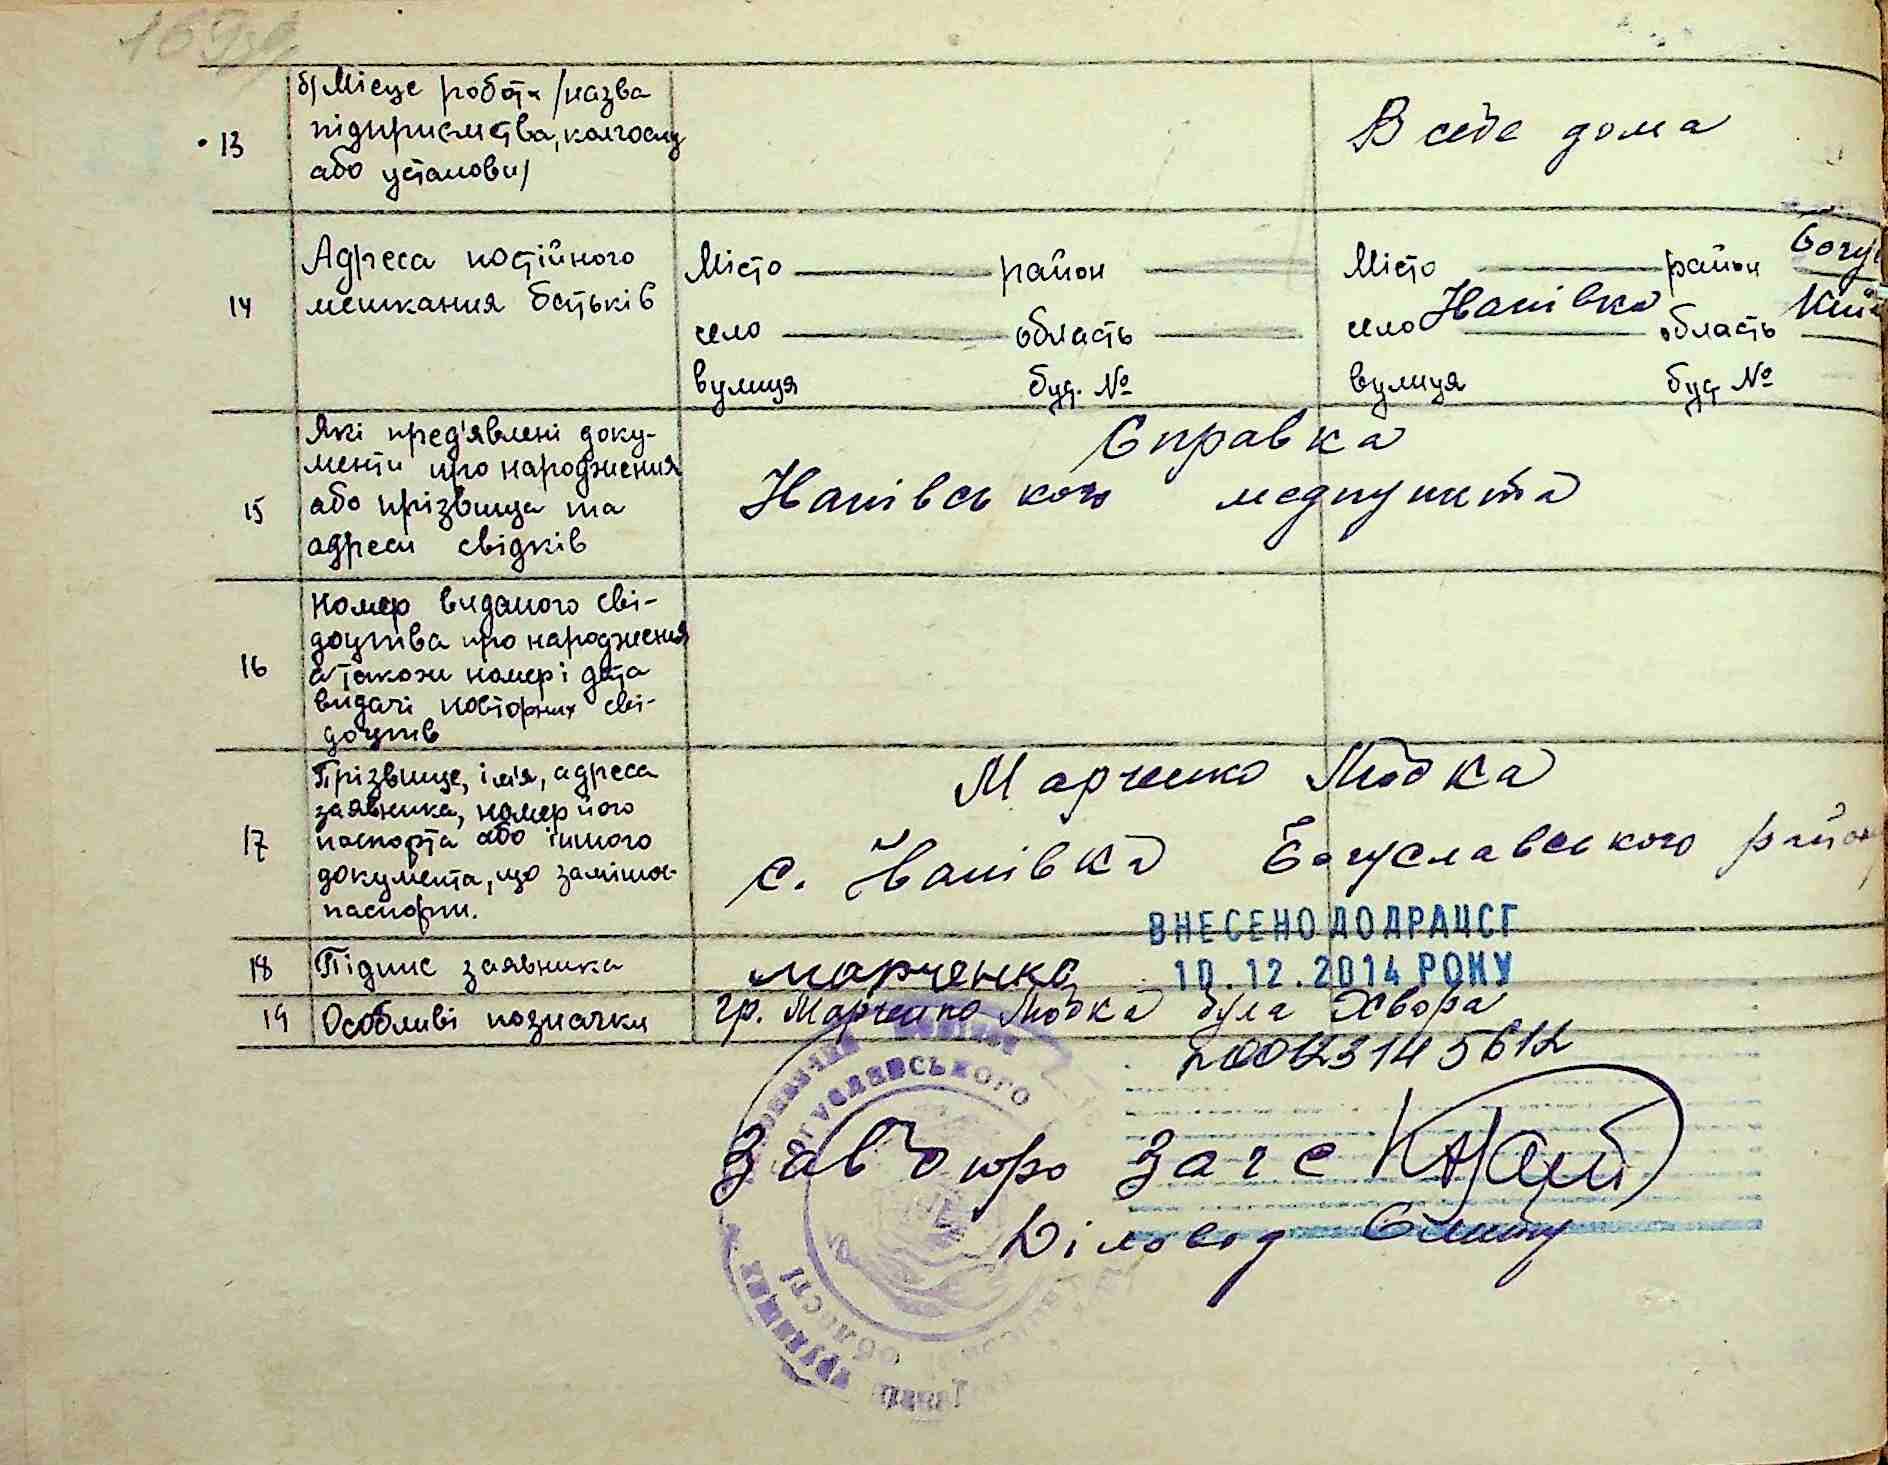 13
б) Місце роботи /назва
підприємства, колгоспу
або установи/
В себе дома
14
Адреса постійного
мешкання батьків
Місто район
село область
вулиця буд. №
Місто район Богу
село Нанівка область Киї
вулиця буд №
15
Які пред'явлені доку-
менти про народження
або прізвища та
адреси свідків
Справка
Нанівського медпункта
16
Номер виданого сві-
доцтва про народження
а також номер і дата
видачі повторних сві-
доцтв
17
Прізвище, ім'я, адреса
заявника, номер його
паспорта або іншого
документа, що заміняє
паспорт.
Марченко Любка
с. Іванівка Богуславського район
ВНЕСЕНО ДО ДРАЦСГ
10.12.2014 РОКУ
18
Підпис заявника
Марченко
19
Особливі позначки
гр. Марченко Любка була хвора
00123145612
Богуславського
трудящих
області
Зав бюро Загс
Діловод